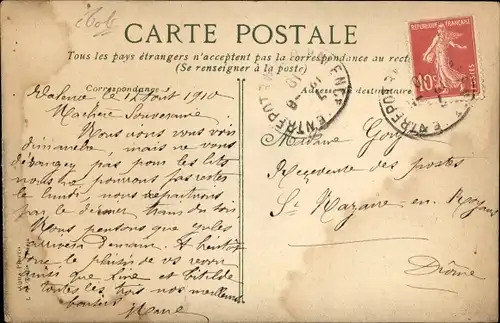 CARTE POSTALE
Tous les pays étrangers n'acceptent pas la correspondance au recto
(Se renseigner à la poste)
Correspondance
Adresse du destinataire
RÉPUBLIQUE FRANÇAISE
10c
POSTES
VALENCE ENTREPOT
Valence le 12 Août 1910
Ma chère
Nous vous
dimanche, mais ne vous
dérangez pas pour les lits
nous ne pourrons pas rester
le lundi, nous repartirons
par le dernier train du soir
Nous pensons que Jules
arrivera demain. A bientôt
donc le plaisir de vs revoir
ainsi que Line et
à toutes les trois nos meilleurs
baisers
Marie
Madame
Receveuse des postes
St Nazaire en Royans
Drôme